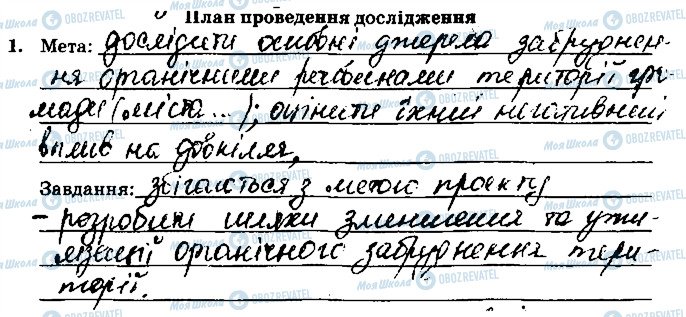 План проведення дослідження
1. Мета: дослідити основні джерела забруднен-
ня органічними речовинами території гро-
мади (міста...); оцінити їхній негативний
вплив на довкілля,
Завдання: збігаються з метою проекту
- розробити шляхи зменшення та ути-
лізації органічного забруднення тери-
торії.